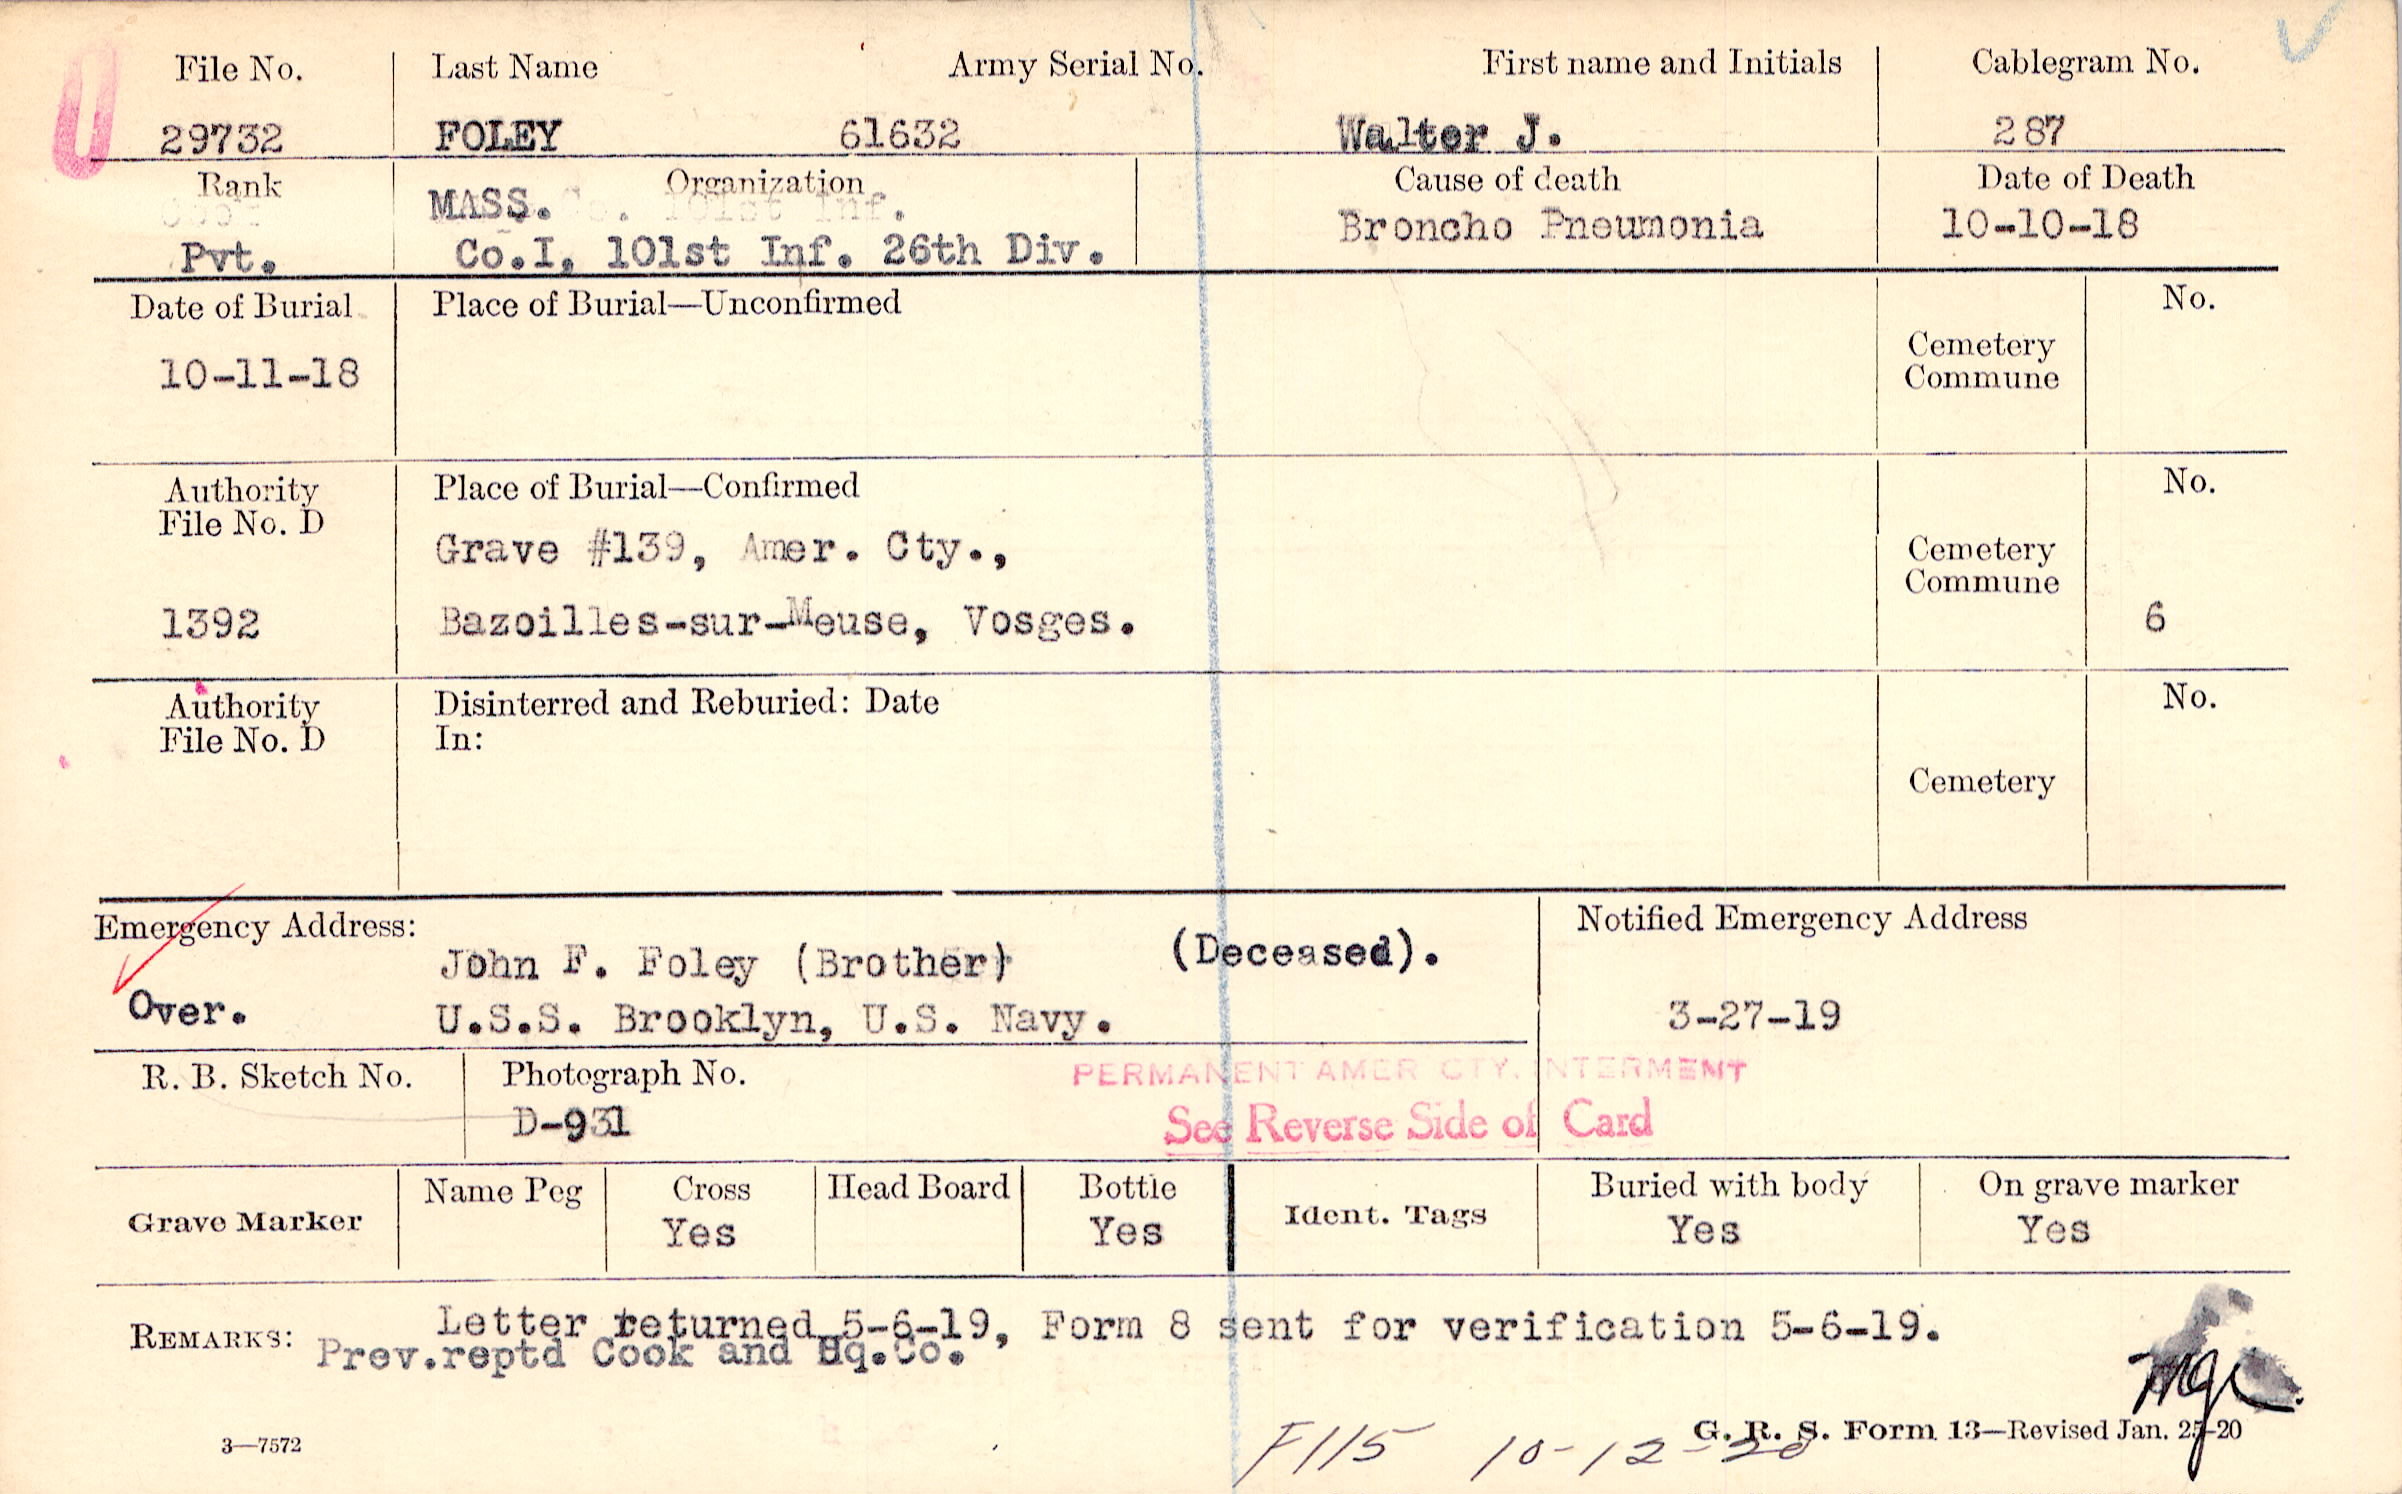 File No. Last Name Army Serial No. First name and Initials Cablegram No.
29732 FOLEY 61632 Walter J. 287
Rank Organization Cause of death Date of Death
MASS. Co. 101st Inf.
Broncho Pneumonia 10-10-18
Pvt. Co.I, 101st Inf. 26th Div.
Date of Burial Place of Burial—Unconfirmed No.
Cemetery
Commune
10-11-18
Authority Place of Burial—Confirmed No.
File No. D
Grave #139, Amer. Cty., Cemetery
Commune
1392 Bazoilles-sur-Meuse, Vosges. 6
Authority Disinterred and Reburied: Date No.
File No. D In:
Cemetery
Emergency Address: Notified Emergency Address
John F. Foley (Brother) (Deceased).
Over. U.S.S. Brooklyn, U.S. Navy. 3-27-19
R. B. Sketch No. Photograph No. PERMANENT AMER CTY. INTERMENT
D-931 See Reverse Side of Card
Name Peg Cross Head Board Bottle Buried with body On grave marker
Grave Marker Yes Yes Ident. Tags Yes Yes
REMARKS: Letter returned 5-6-19, Form 8 sent for verification 5-6-19.
Prev.reptd Cook and Hq.Co.
3—7572 F115 10-12-20 G. R. S. Form 13—Revised Jan. 25-20